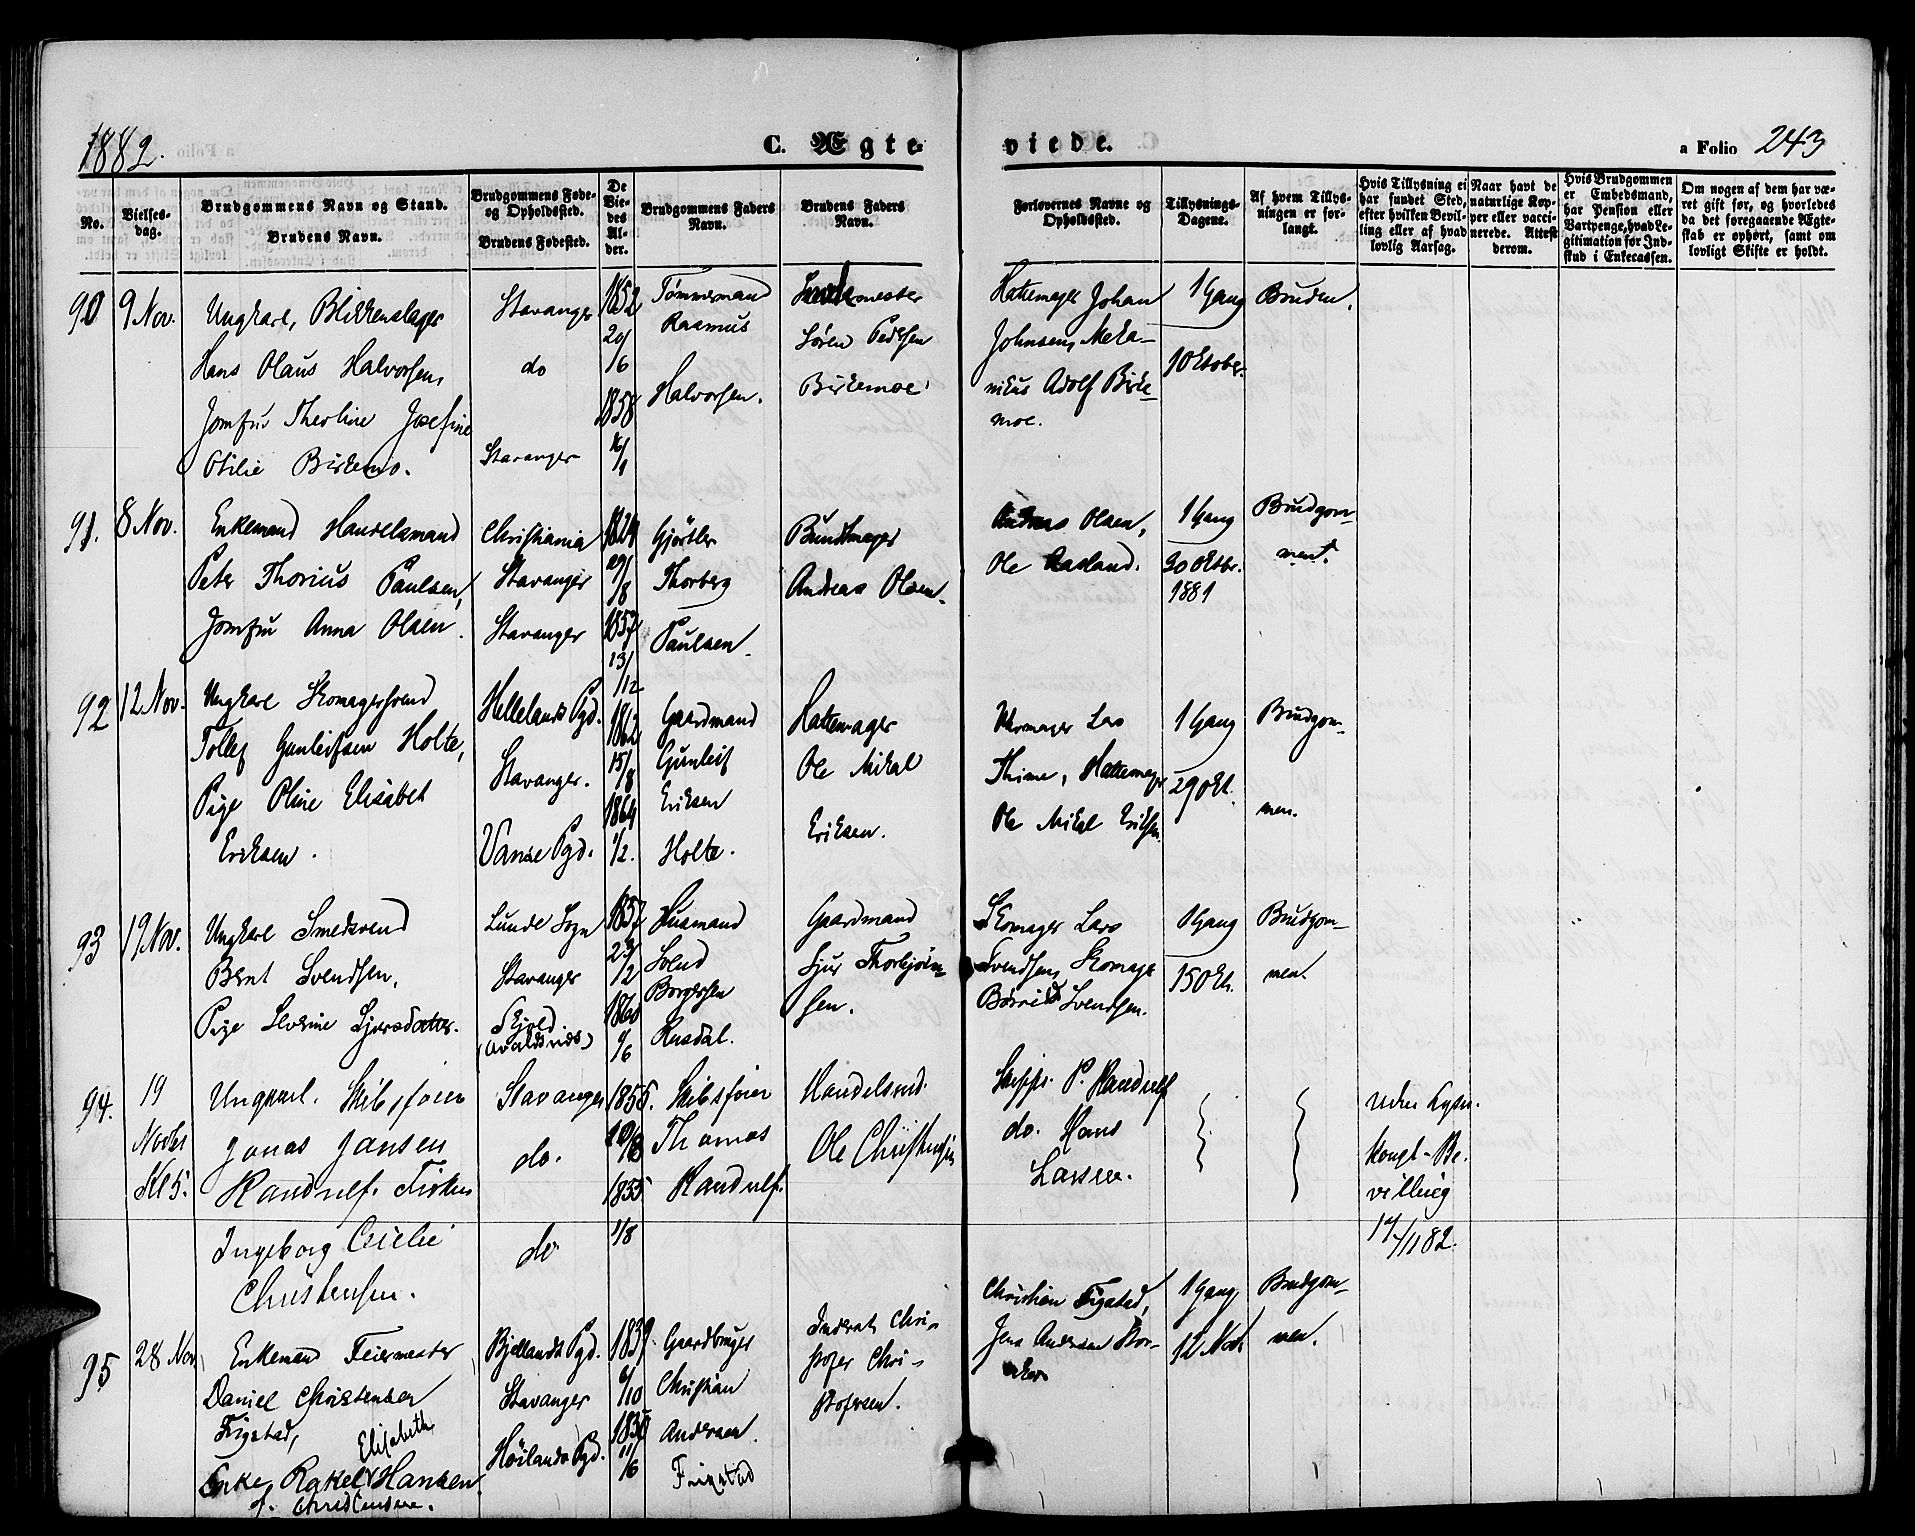 1882.
C. Ægte-
viede.
a Folio 243
No.
Vielses-
dag.
Brudgommens Navn og Stand.
Brudens Navn.
Brudgommens Føde-
og Opholdssted.
Brudens Fødested.
De
Vie-
des
Al-
der.
Brudgommens Faders
Navn.
Brudens Faders
Navn.
Forlovernes Navne og
Opholdssted.
Tillysnings-
Dagene.
Af hvem Tillys-
ningen er for-
langt.
Hvis Tillysning ei
har fundet Sted,
efter hvilken Bevil-
ling eller af hvad
lovlig Aarsag.
Naar havt de
naturlige Kop-
per eller vacci-
nerede. Attest
derom.
Hvis Brudgommen
er Embedsmand,
har Pension eller
Vartpenge, hvad Le-
gitimation for Ind-
skud i Enkecassen.
Om nogen af dem har væ-
ret gift før, og hvorledes
da det foregaaende Ægte-
skab er ophørt, samt om
lovligt Skifte er holdt.
90
9 Nov.
Ungkarl, Blikkenslager
Hans Olaus Halvorsen,
Jomfru Theoline Josefine
Otilie Birkemo.
Stavanger
do
Stavanger
1852
20/6
1858
16/1
Tømmermand
Rasmus
Halvorsen.
mester
Søren Pedersen
Birkemoe
Hattemager Johan
Johnsen, Meka-
nikus Adolf Birke-
moe.
1 Gang
1 Oktober.
Bruden.
91.
8 Nov.
Enkemand Handelsmand
Peter Thorius Paulsen,
Jomfru Anna Olsen.
Christiania
Stavanger
Stavanger
1824
29/8
1857
13/12
Gjørtler
Thorberg
Paulsen.
Bundtmager
Andreas Olsen.
Andreas Olsen,
Ole Aasland.
1 Gang
30 Oktbr.
1881
Brudgom-
men.
92
12 Nov.
Ungkarl Skomagersvend
Tollef Gunleifsen Holte,
Pige Oline Elisabet
Eriksen.
Hellelands Pgd.
Stavanger.
Vanse Pgd.
1862
15/8
1864
1/2.
Gaardmand
Gunleif
Eriksen
Holte.
Hattemager
Ole Mikal
Eriksen.
Uhrmager Lars
Thime, Hattemager
Ole Mikal Eriksen.
1 Gang
29 Okt.
Brudgom-
men.
93
19 Nov.
Ungkarl Smedsvend
Bernt Svendsen,
Pige Severine Sjursdatter.
Lunde Sogn
Stavanger
Skjold
(Avaldsnes)
1857
23/2
1860
6/6
Husmand
Svend
Borgersen
Rusdal.
Gaardmand
Sjur Thorbjørn-
sen.
Skomager Lars
Svendsen, Skomager
Børre Svendsen.
1 Gang
15 Okt.
Brudgom-
men.
94.
19
Novbr
Kl 5.
Ungkarl. Skibsfører
Jonas Jansen
Randulf. Frøken
Ingeborg Cecilie
Christensen.
Stavanger
do.
do
1855.
1855
1/8
Skibsfører
Thomas
Randulf.
Handelsmd.
Ole Christensen
Skipps. P. Randulf
do. Hans
Larsen.
Uden Lysn.
Kongl. Be-
villing
17/11 82.
95
28 Nov
Enkemand Feiermester
Daniel Christensen
Figstad,
Elisabeth
Enke Rakel Hansen.
f. Christensen.
Bjellands Pgd.
Stavanger
Høilands Pgd.
1839.
6/10
1830
11/6
Gaardbruger
Christian
Andersen
Figstad
Inderst Chri-
stofer Chri-
stofersen.
Christian Figstad,
Jens Andreas
1 Gang
12 Nov.
Brudgom-
men.